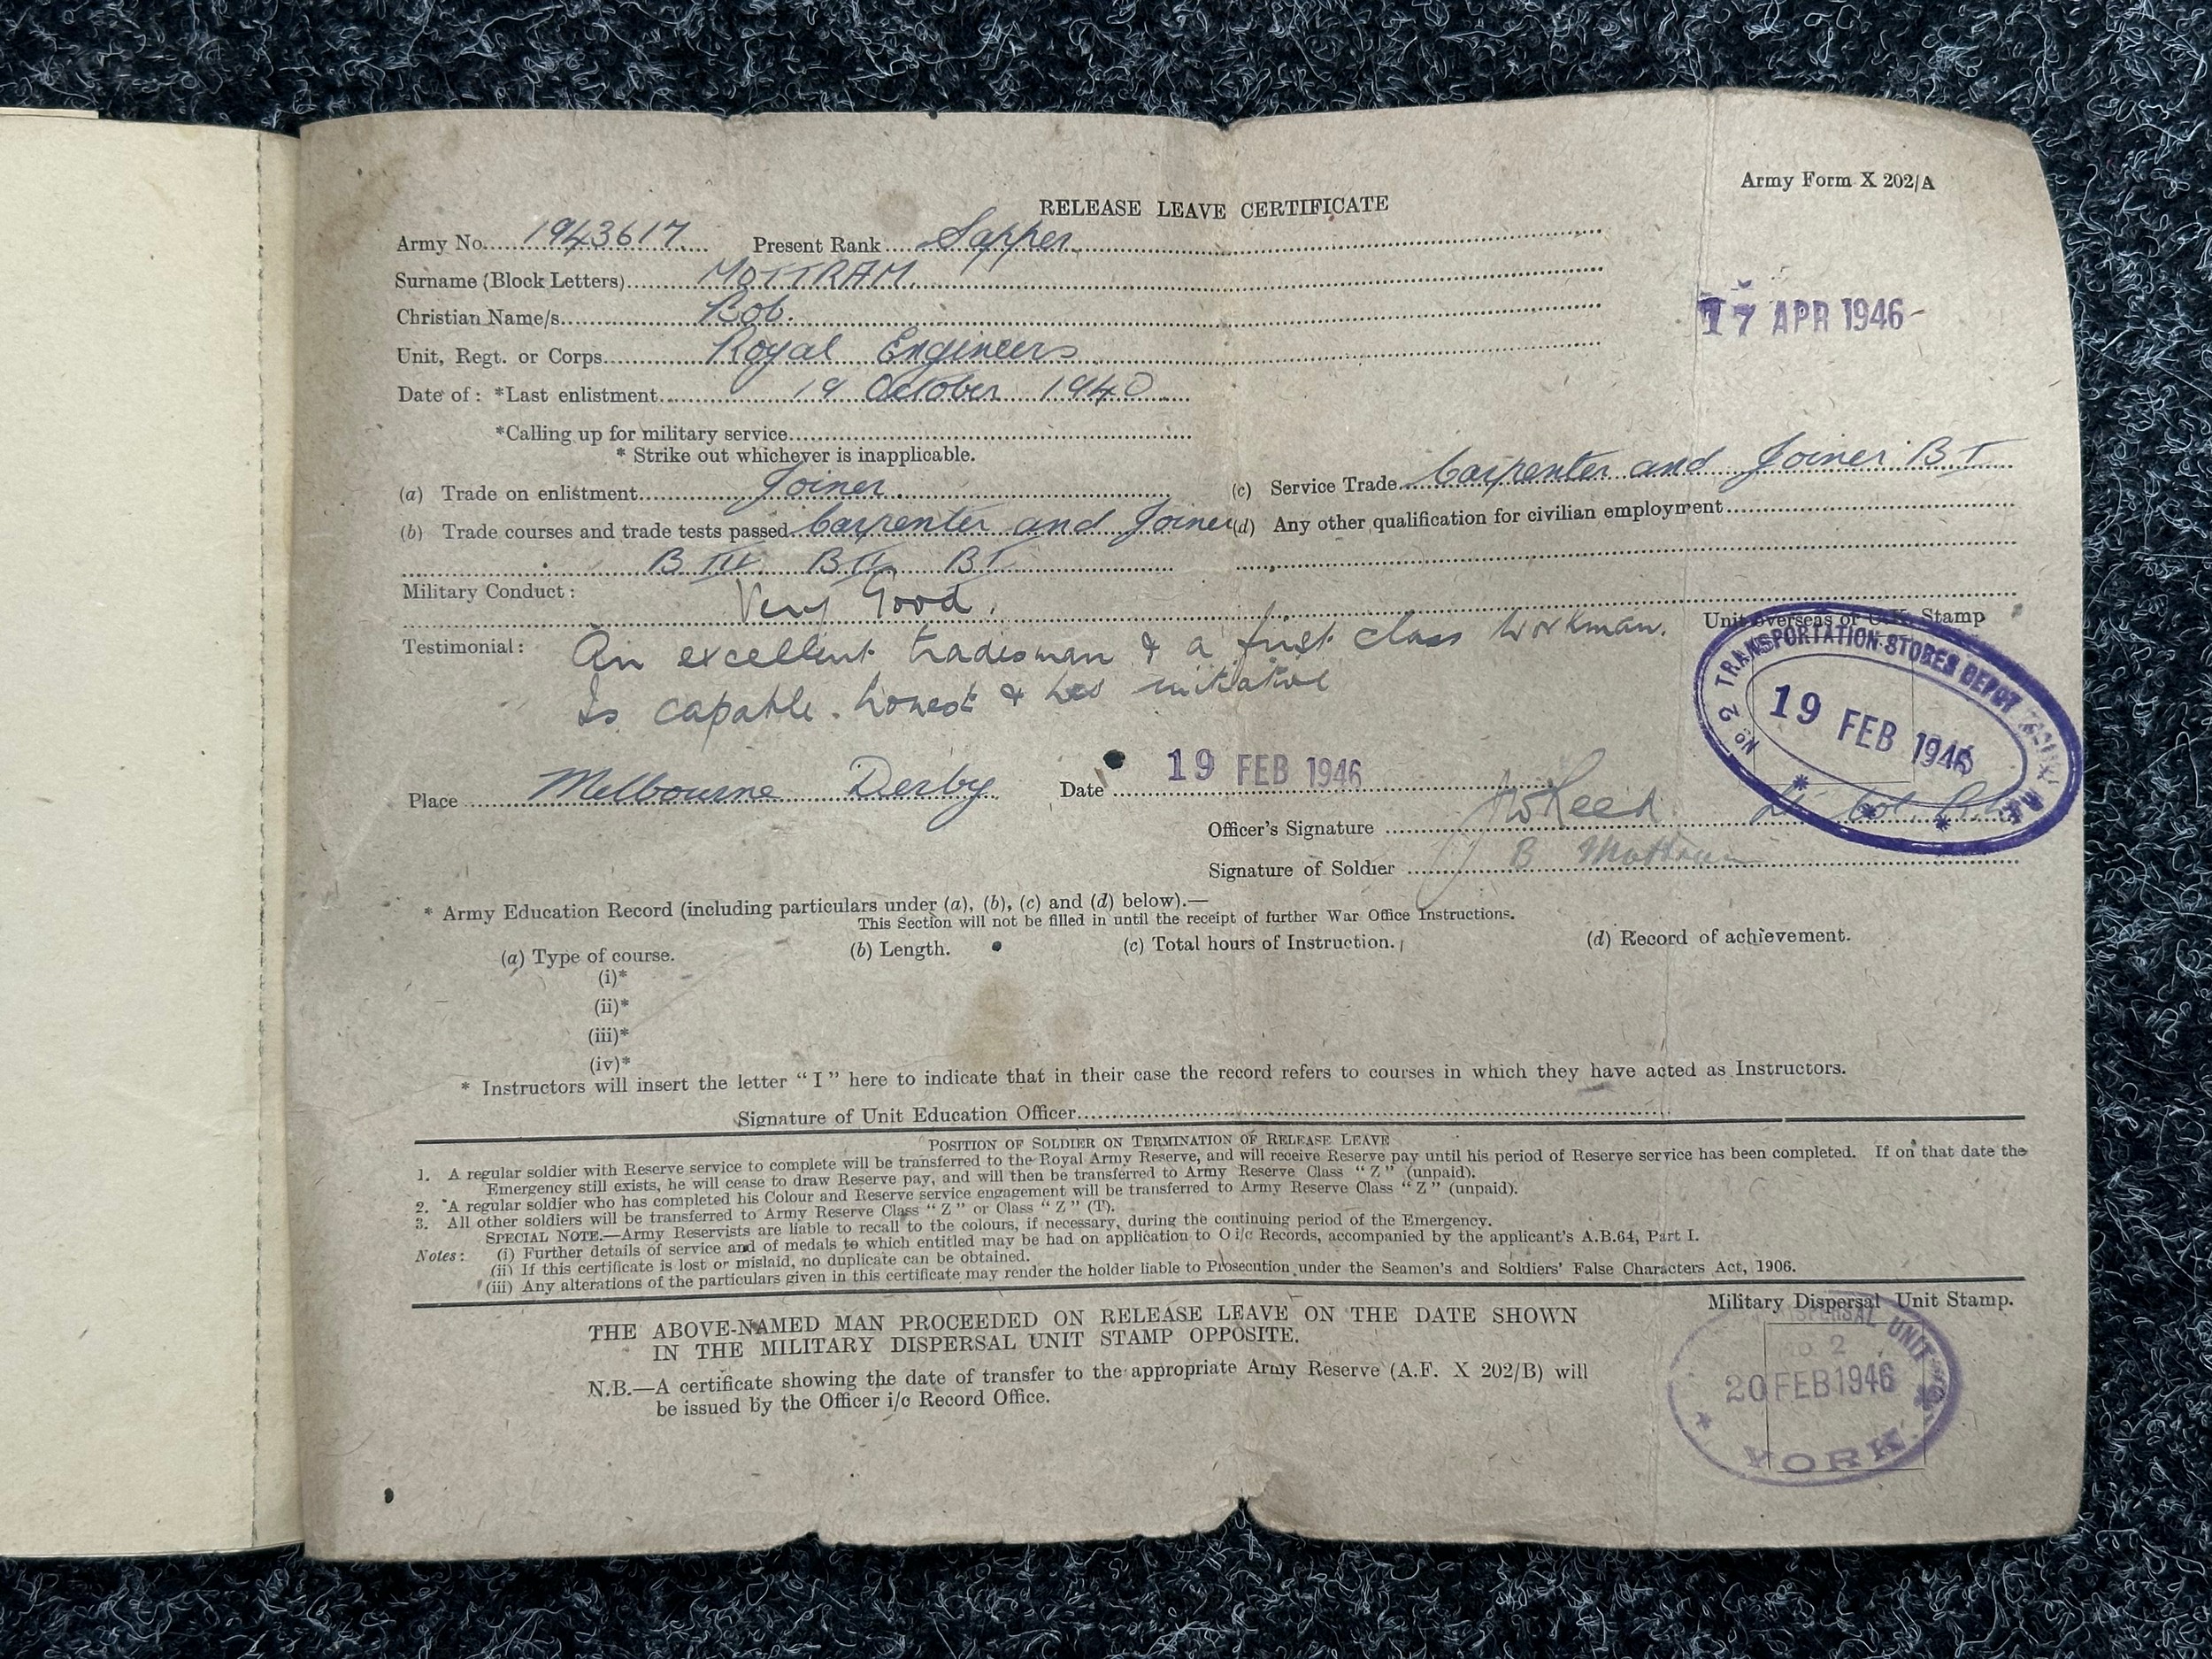 Army Form X 202/A
RELEASE LEAVE CERTIFICATE
Army No. 1943617 Present Rank Sapper
Surname (Block Letters) MOTTRAM.
Christian Name/s Bob.
17 APR 1946
Unit, Regt. or Corps Royal Engineers
Date of: *Last enlistment 19 October 1940
*Calling up for military service
* Strike out whichever is inapplicable.
(a) Trade on enlistment Joiner.
(c) Service Trade Carpenter and Joiner B I
(b) Trade courses and trade tests passed Carpenter and Joiner
B III B II B I
(d) Any other qualification for civilian employment
Military Conduct: Very Good.
Testimonial: An excellent tradesman & a first class workman.
Is capable. honest & has initiative
Unit overseas or U.K. Stamp
No 2 TRANSPORTATION STORES DEPOT
19 FEB 1946
Place Melbourne Derby Date 19 FEB 1946
Officer's Signature Reed Lt Col.
Signature of Soldier B Mottram
* Army Education Record (including particulars under (a), (b), (c) and (d) below).—
This Section will not be filled in until the receipt of further War Office Instructions.
(a) Type of course. (b) Length. (c) Total hours of Instruction. (d) Record of achievement.
(i)*
(ii)*
(iii)*
(iv)*
* Instructors will insert the letter "I" here to indicate that in their case the record refers to courses in which they have acted as Instructors.
Signature of Unit Education Officer
POSITION OF SOLDIER ON TERMINATION OF RELEASE LEAVE
1. A regular soldier with Reserve service to complete will be transferred to the Royal Army Reserve, and will receive Reserve pay until his period of Reserve service has been completed. If on that date the
Emergency still exists, he will cease to draw Reserve pay, and will then be transferred to Army Reserve Class "Z" (unpaid).
2. A regular soldier who has completed his Colour and Reserve service engagement will be transferred to Army Reserve Class "Z" (unpaid).
3. All other soldiers will be transferred to Army Reserve Class "Z" or Class "Z" (T).
SPECIAL NOTE.—Army Reservists are liable to recall to the colours, if necessary, during the continuing period of the Emergency.
Notes: (i) Further details of service and of medals to which entitled may be had on application to O i/c Records, accompanied by the applicant's A.B.64, Part I.
(ii) If this certificate is lost or mislaid, no duplicate can be obtained.
(iii) Any alterations of the particulars given in this certificate may render the holder liable to Prosecution under the Seamen's and Soldiers' False Characters Act, 1906.
THE ABOVE-NAMED MAN PROCEEDED ON RELEASE LEAVE ON THE DATE SHOWN
IN THE MILITARY DISPERSAL UNIT STAMP OPPOSITE.
N.B.—A certificate showing the date of transfer to the appropriate Army Reserve (A.F. X 202/B) will
be issued by the Officer i/c Record Office.
Military Dispersal Unit Stamp.
DISPERSAL UNIT
NO. 2
20 FEB 1946
YORK